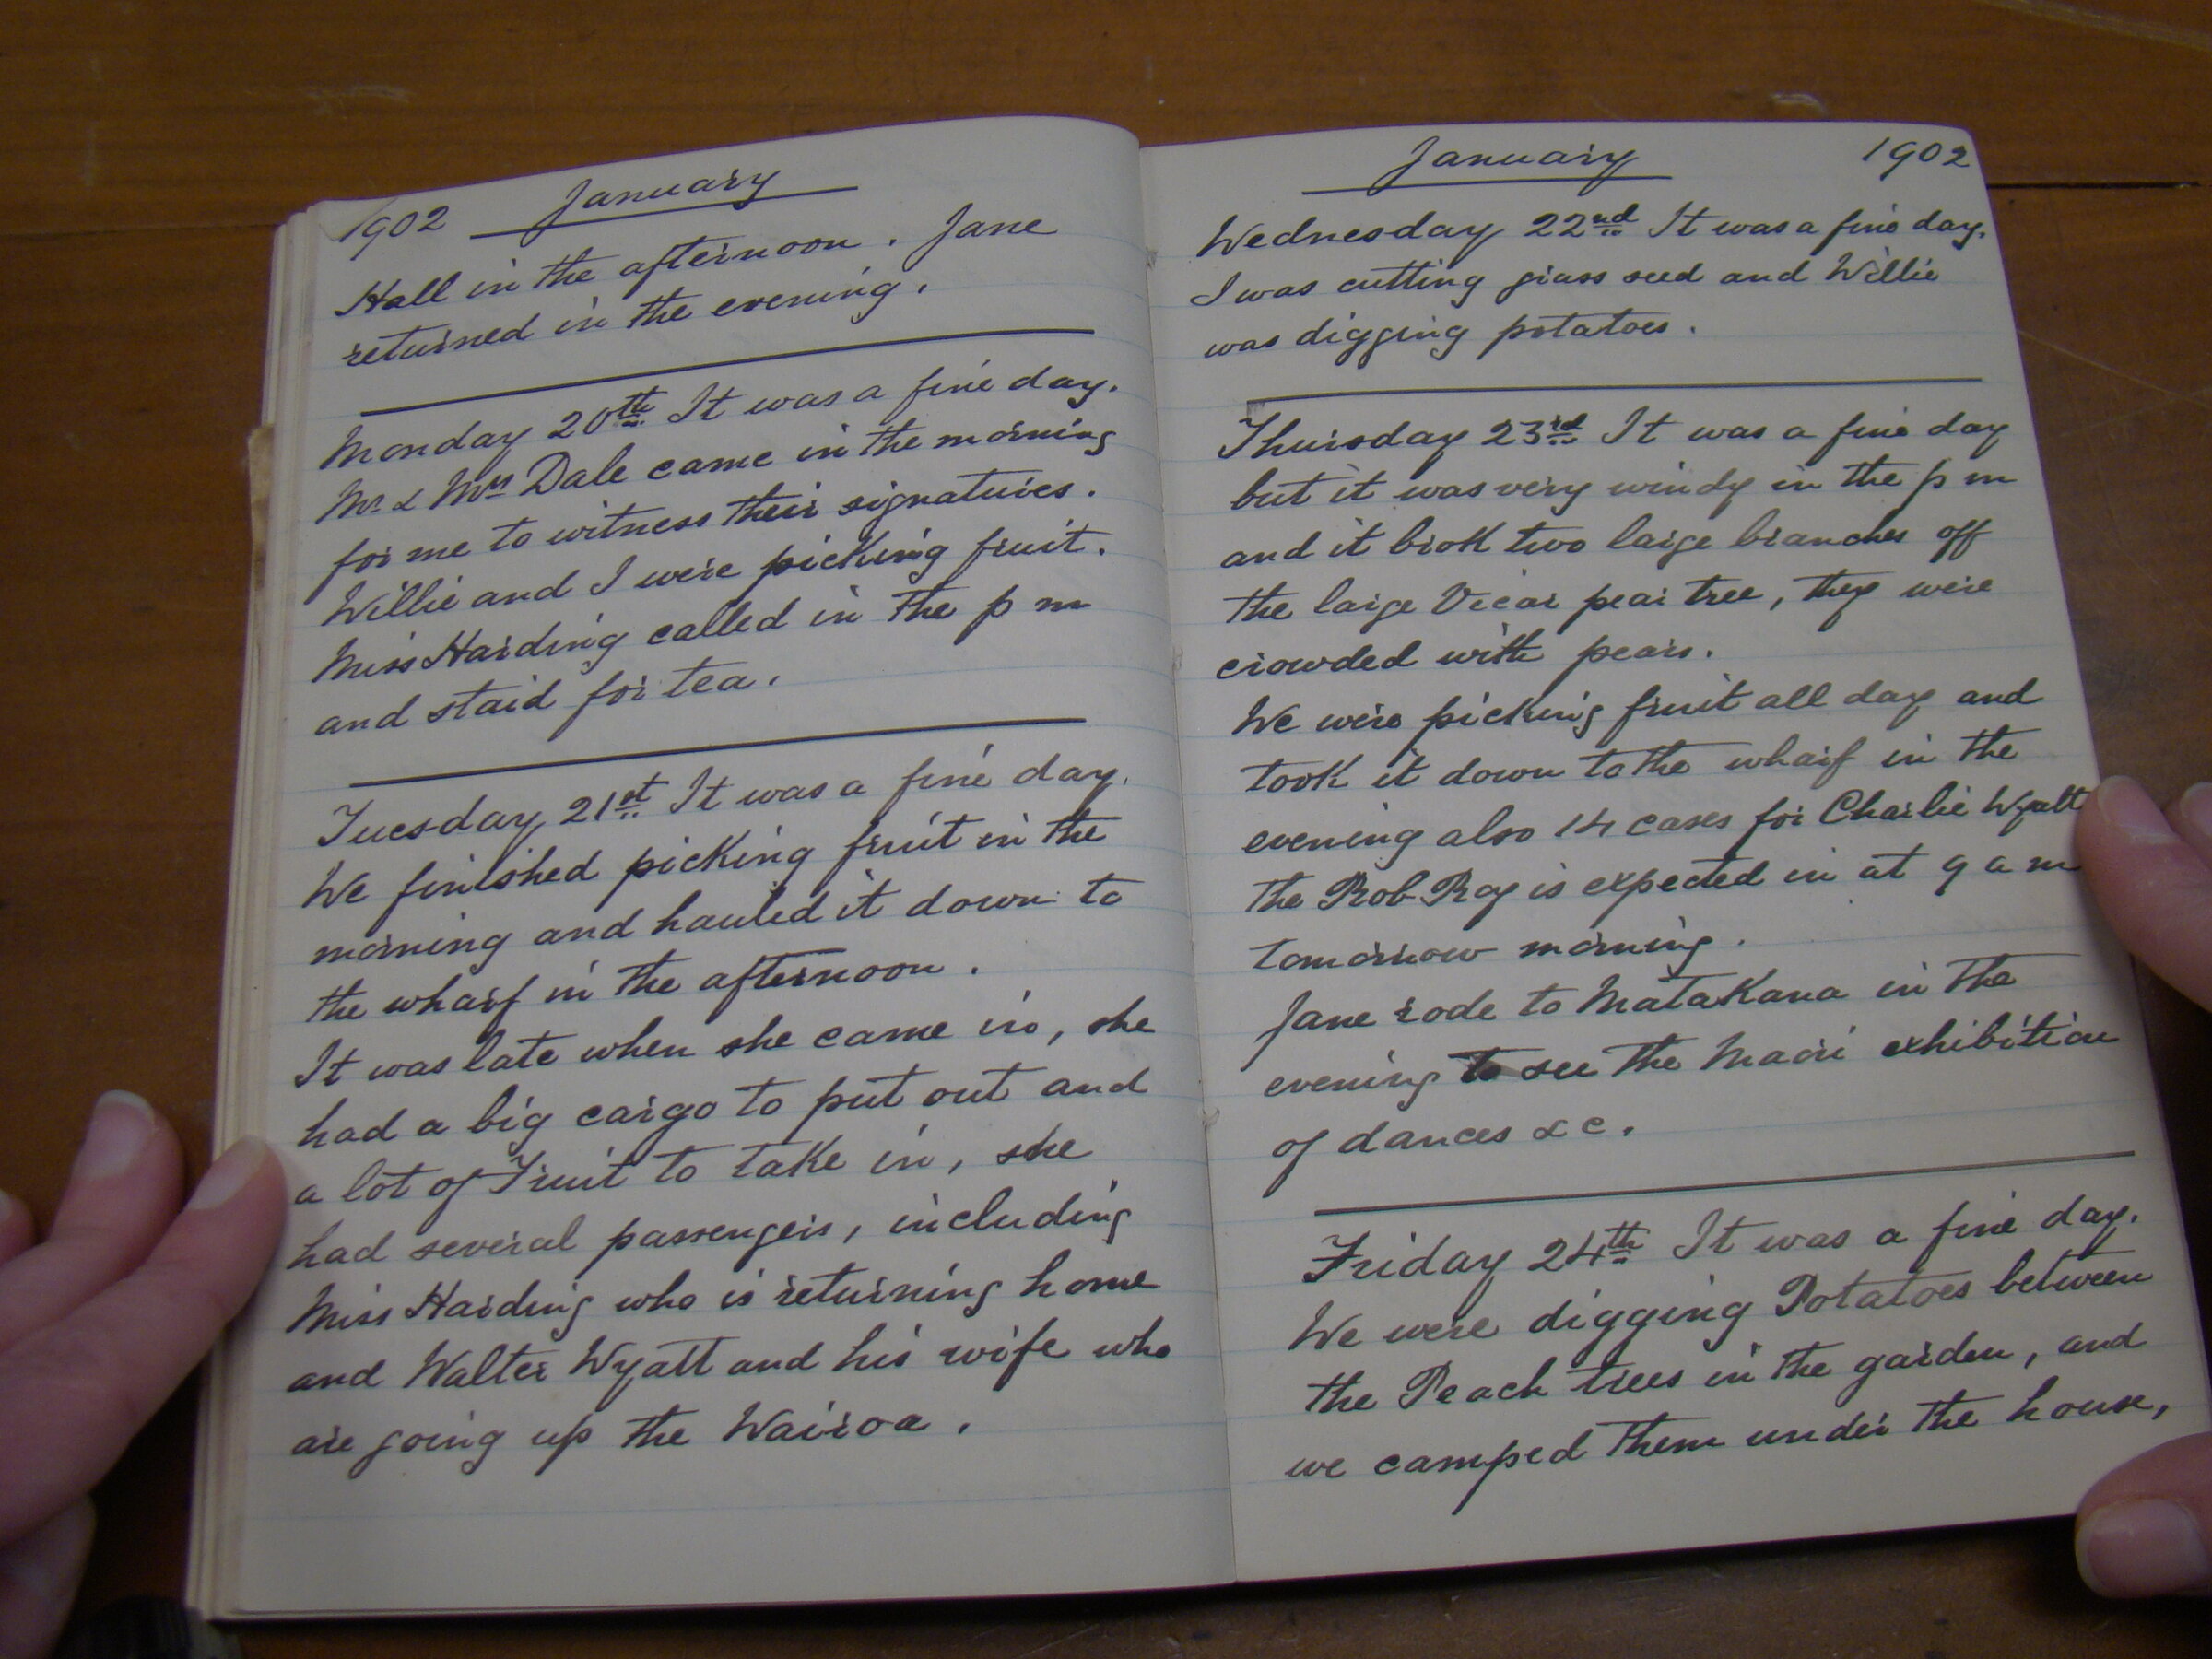 1902 January
Hall in the afternoon. Jane
returned in the evening.
Monday 20th It was a fine day.
Mr & Mrs Dale came in the morning
for me to witness their signatures.
Willie and I were picking fruit.
Miss Harding called in the p m
and staid for tea.
Tuesday 21st It was a fine day.
We finished picking fruit in the
morning and hauled it down to
the wharf in the afternoon.
It was late when she came in, she
had a big cargo to put out and
a lot of Fruit to take in, she
had several passengers, including
Miss Harding who is returning home
and Walter Wyatt and his wife who
are going up the Wairoa.
January 1902
Wednesday 22nd It was a fine day.
I was cutting grass seed and Willie
was digging potatoes.
Thursday 23rd It was a fine day
but it was very windy in the p m
and it brok two large branches off
the large Vicar pear tree, they were
crowded with pears.
We were picking fruit all day and
took it down to the wharf in the
evening also 14 cases for Charlie Wyatt
the Rob Roy is expected in at 9 a m
tomorrow morning.
Jane rode to Matakana in the
evening to see the Maori exhibition
of dances &c.
Friday 24th It was a fine day.
We were digging Potatoes between
the Peach trees in the garden, and
we camped them under the house,